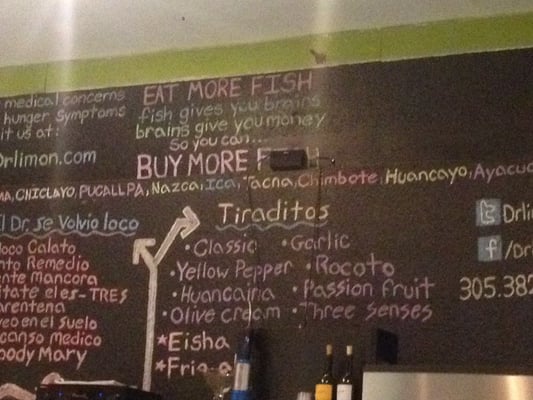 medical concerns
hunger symptoms
it us at:
Drlimon.com
EAT MORE FISH
fish gives you brains
brains give you money
so you can...
BUY MORE F H
MA, CHICLAYO, PUCALLPA, Nazca, Ica, Tacna, Chimbote, Huancayo, Ayacuc
El Dr. se Volvio loco
loco Calato
nto Remedio
ente Mancora
itate el es-TRES
arentena
veo en el Suelo
canso medico
oody Mary
Tiraditos
• Classic
• Yellow Pepper
• Huancaina
• Olive cream
• Garlic
• Rocoto
• Passion fruit
• Three Senses
*Eisha
Drli
f /Dr
305.382